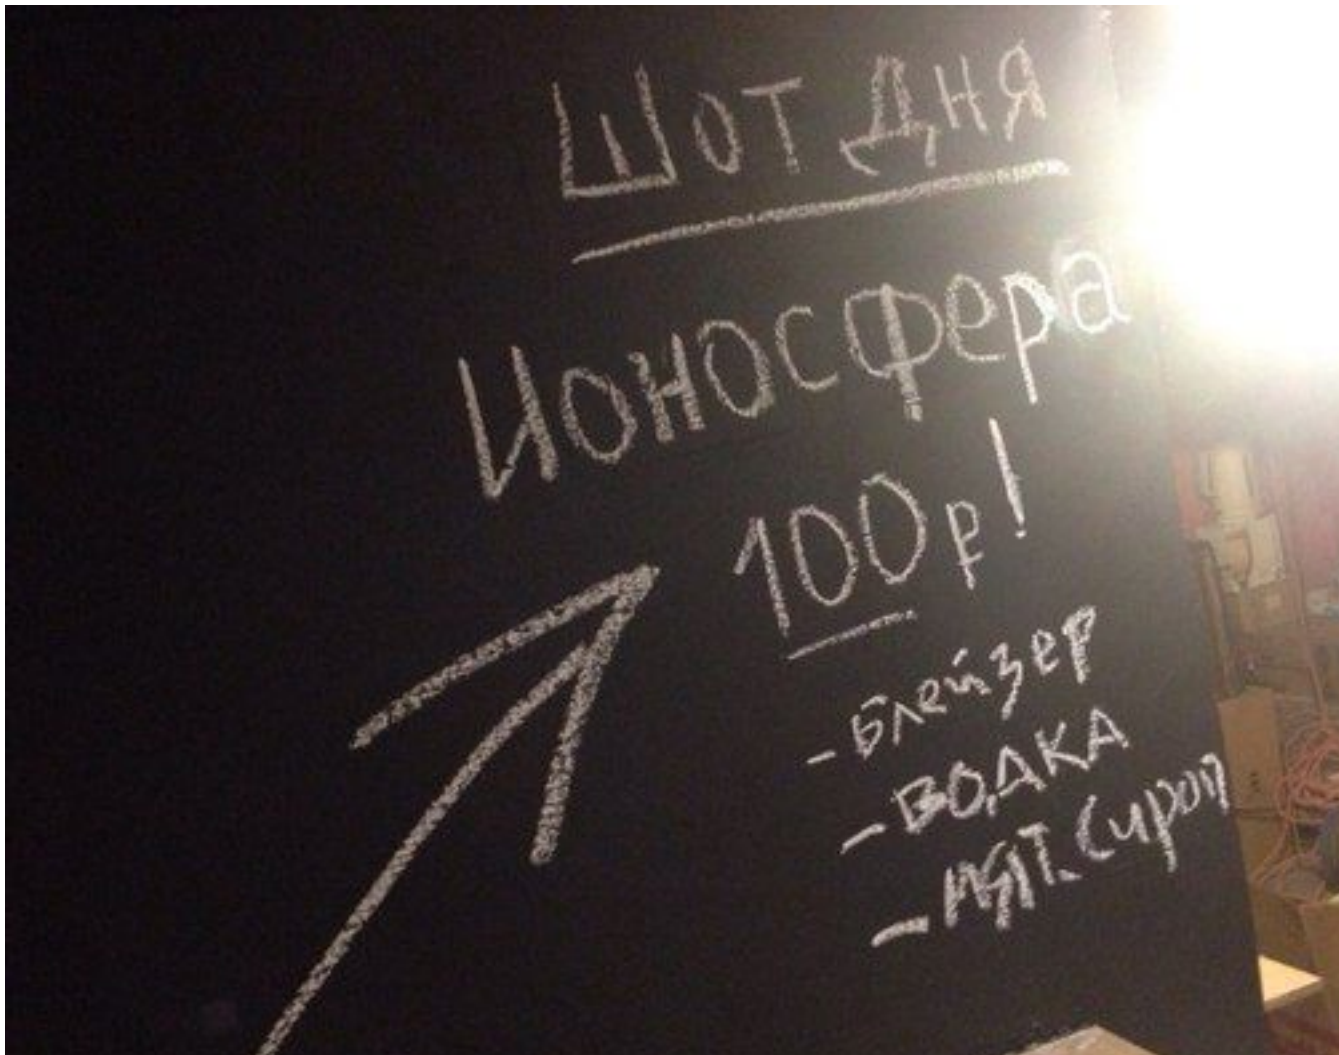 Шот дня
Ионосфера
100р!
- Блейзер
- ВОДКА
- МЯТ. Сироп